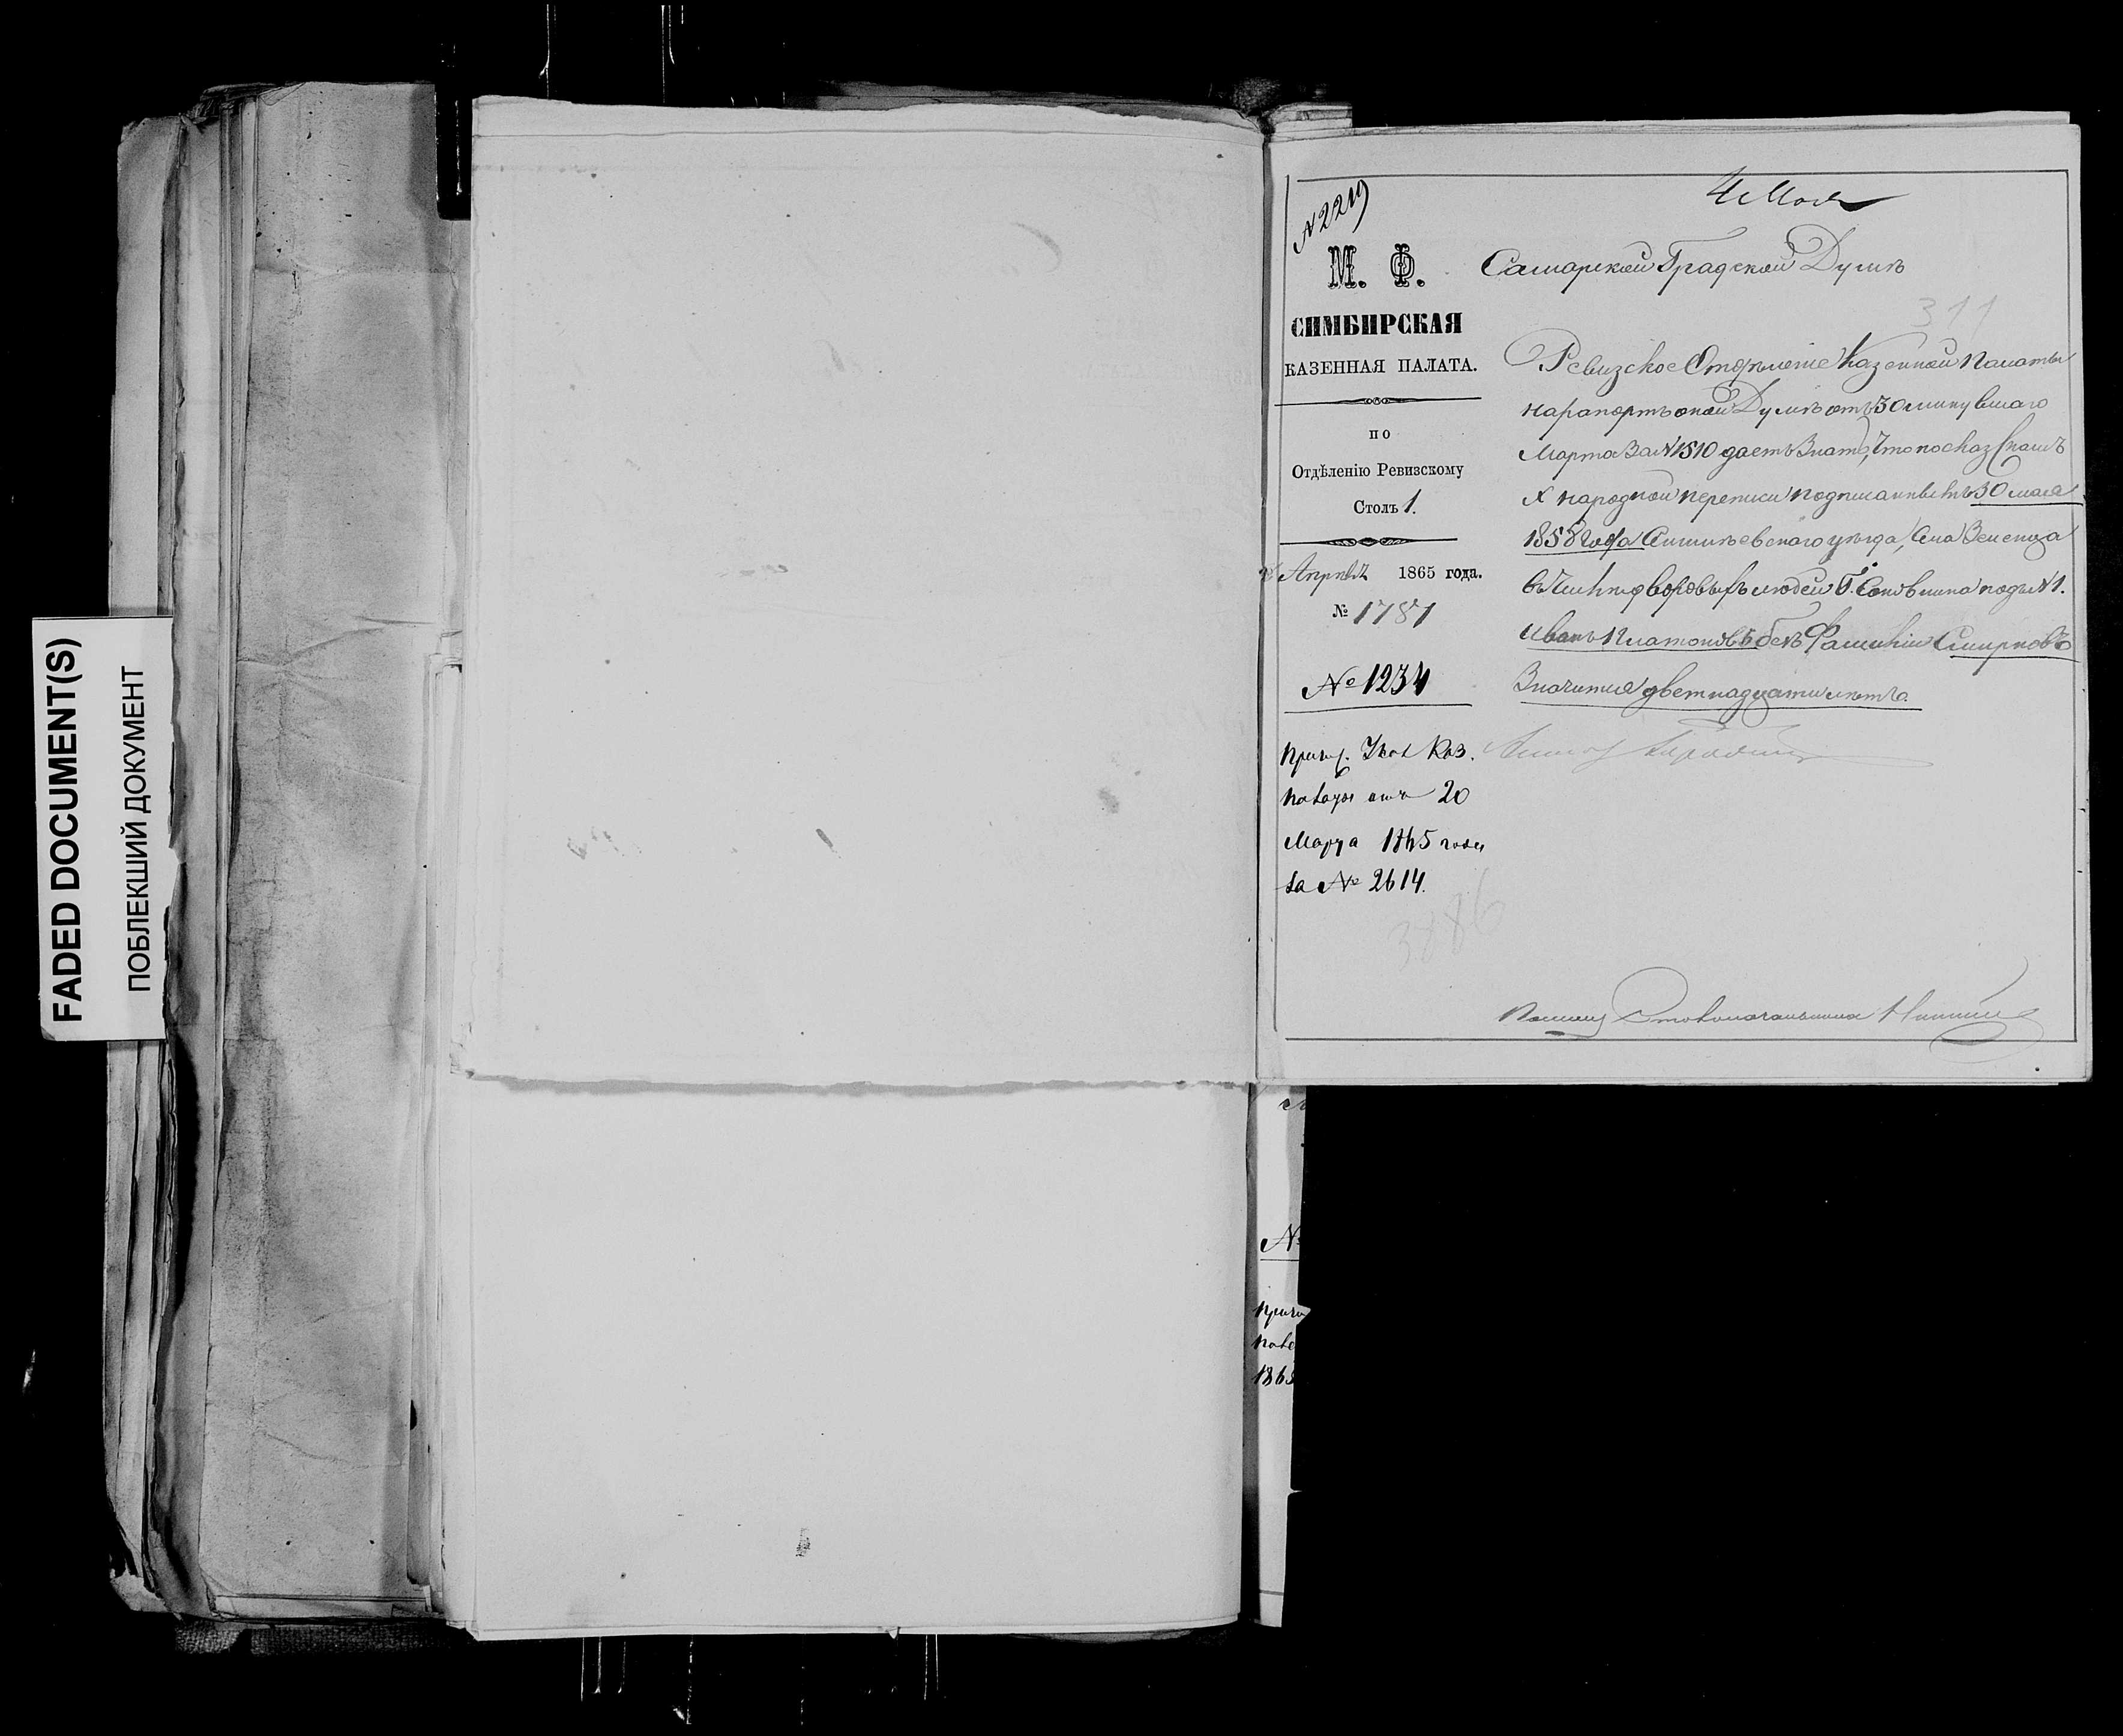 FADED DOCUMENT(S)
ПОБЛЕКШИЙ ДОКУМЕНТ
№ 2219
4 Мая
М. Ф.
СИМБИРСКАЯ
КАЗЕННАЯ ПАЛАТА.
по
Отдѣленію Ревизскому
Столъ 1.
Апрѣля 1865 года.
№ 1787
№ 1234
Каз.
отъ 20
Марта 1865 года
за № 2614.
Самарской Градской Думѣ
311
Ревизское Отдѣленіе Казенной Палаты
на рапортъ оной Думы отъ 30 минувшаго
Марта за № 1510 даетъ знать, что по сказкамъ
X народной переписи подписаннымъ 30 мая
1858 года уѣзда, села
дворовыхъ людей Г. подъ № 1.
Иванъ Платоновъ безъ Фамиліи Смирновъ
Значится двенадцати лѣтъ.
3886
Столоначальника
№
1865